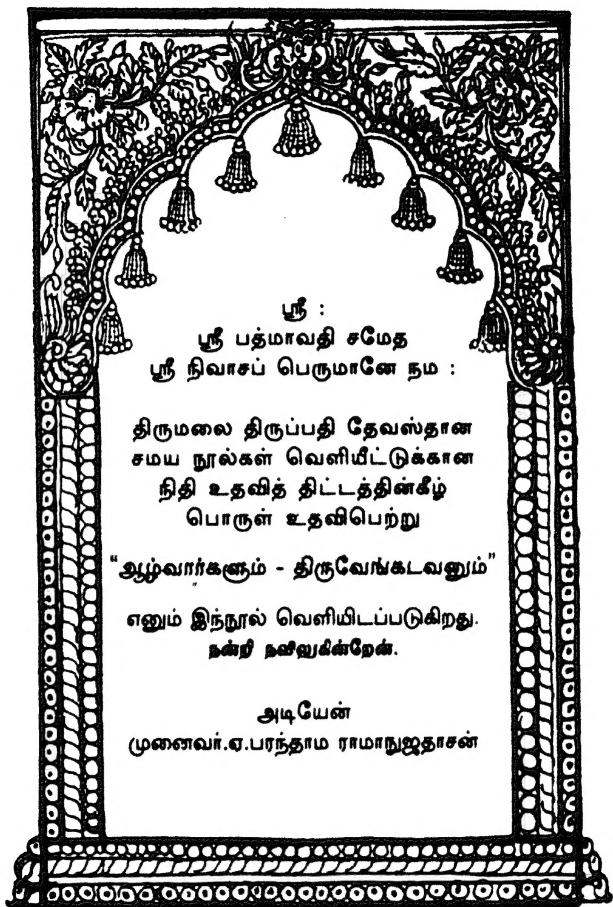 ஸ்ரீ :
ஸ்ரீ பத்மாவதி சமேத
ஸ்ரீ நிவாசப் பெருமானே நம :
திருமலை திருப்பதி தேவஸ்தான
சமய நூல்கள் வெளியீட்டுக்கான
நிதி உதவித் திட்டத்தின்கீழ்
பொருள் உதவிபெற்று
“ஆழ்வார்களும் - திருவேங்கடவனும்”
எனும் இந்நூல் வெளியிடப்படுகிறது.
நன்றி நவிலுகின்றேன்.
அடியேன்
முனைவர்.ஏ.பரந்தாம ராமாநுஜதாசன்